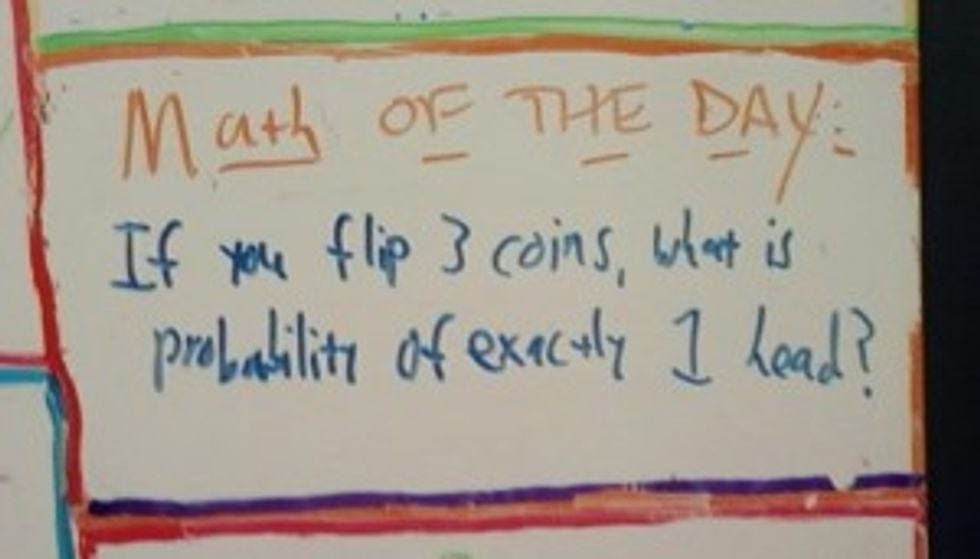 Math OF THE DAY:
If you flip 3 coins, what is
probability of exactly 1 head?